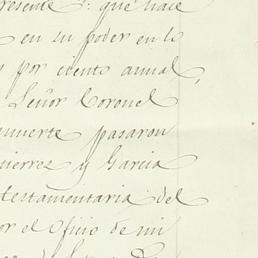 resente : que hace
en su poder en lo
s por ciento annal,
Señor Coronel
muerte pasaron
utierrez y Garcia
testamentaria del
or el Oficio de mi